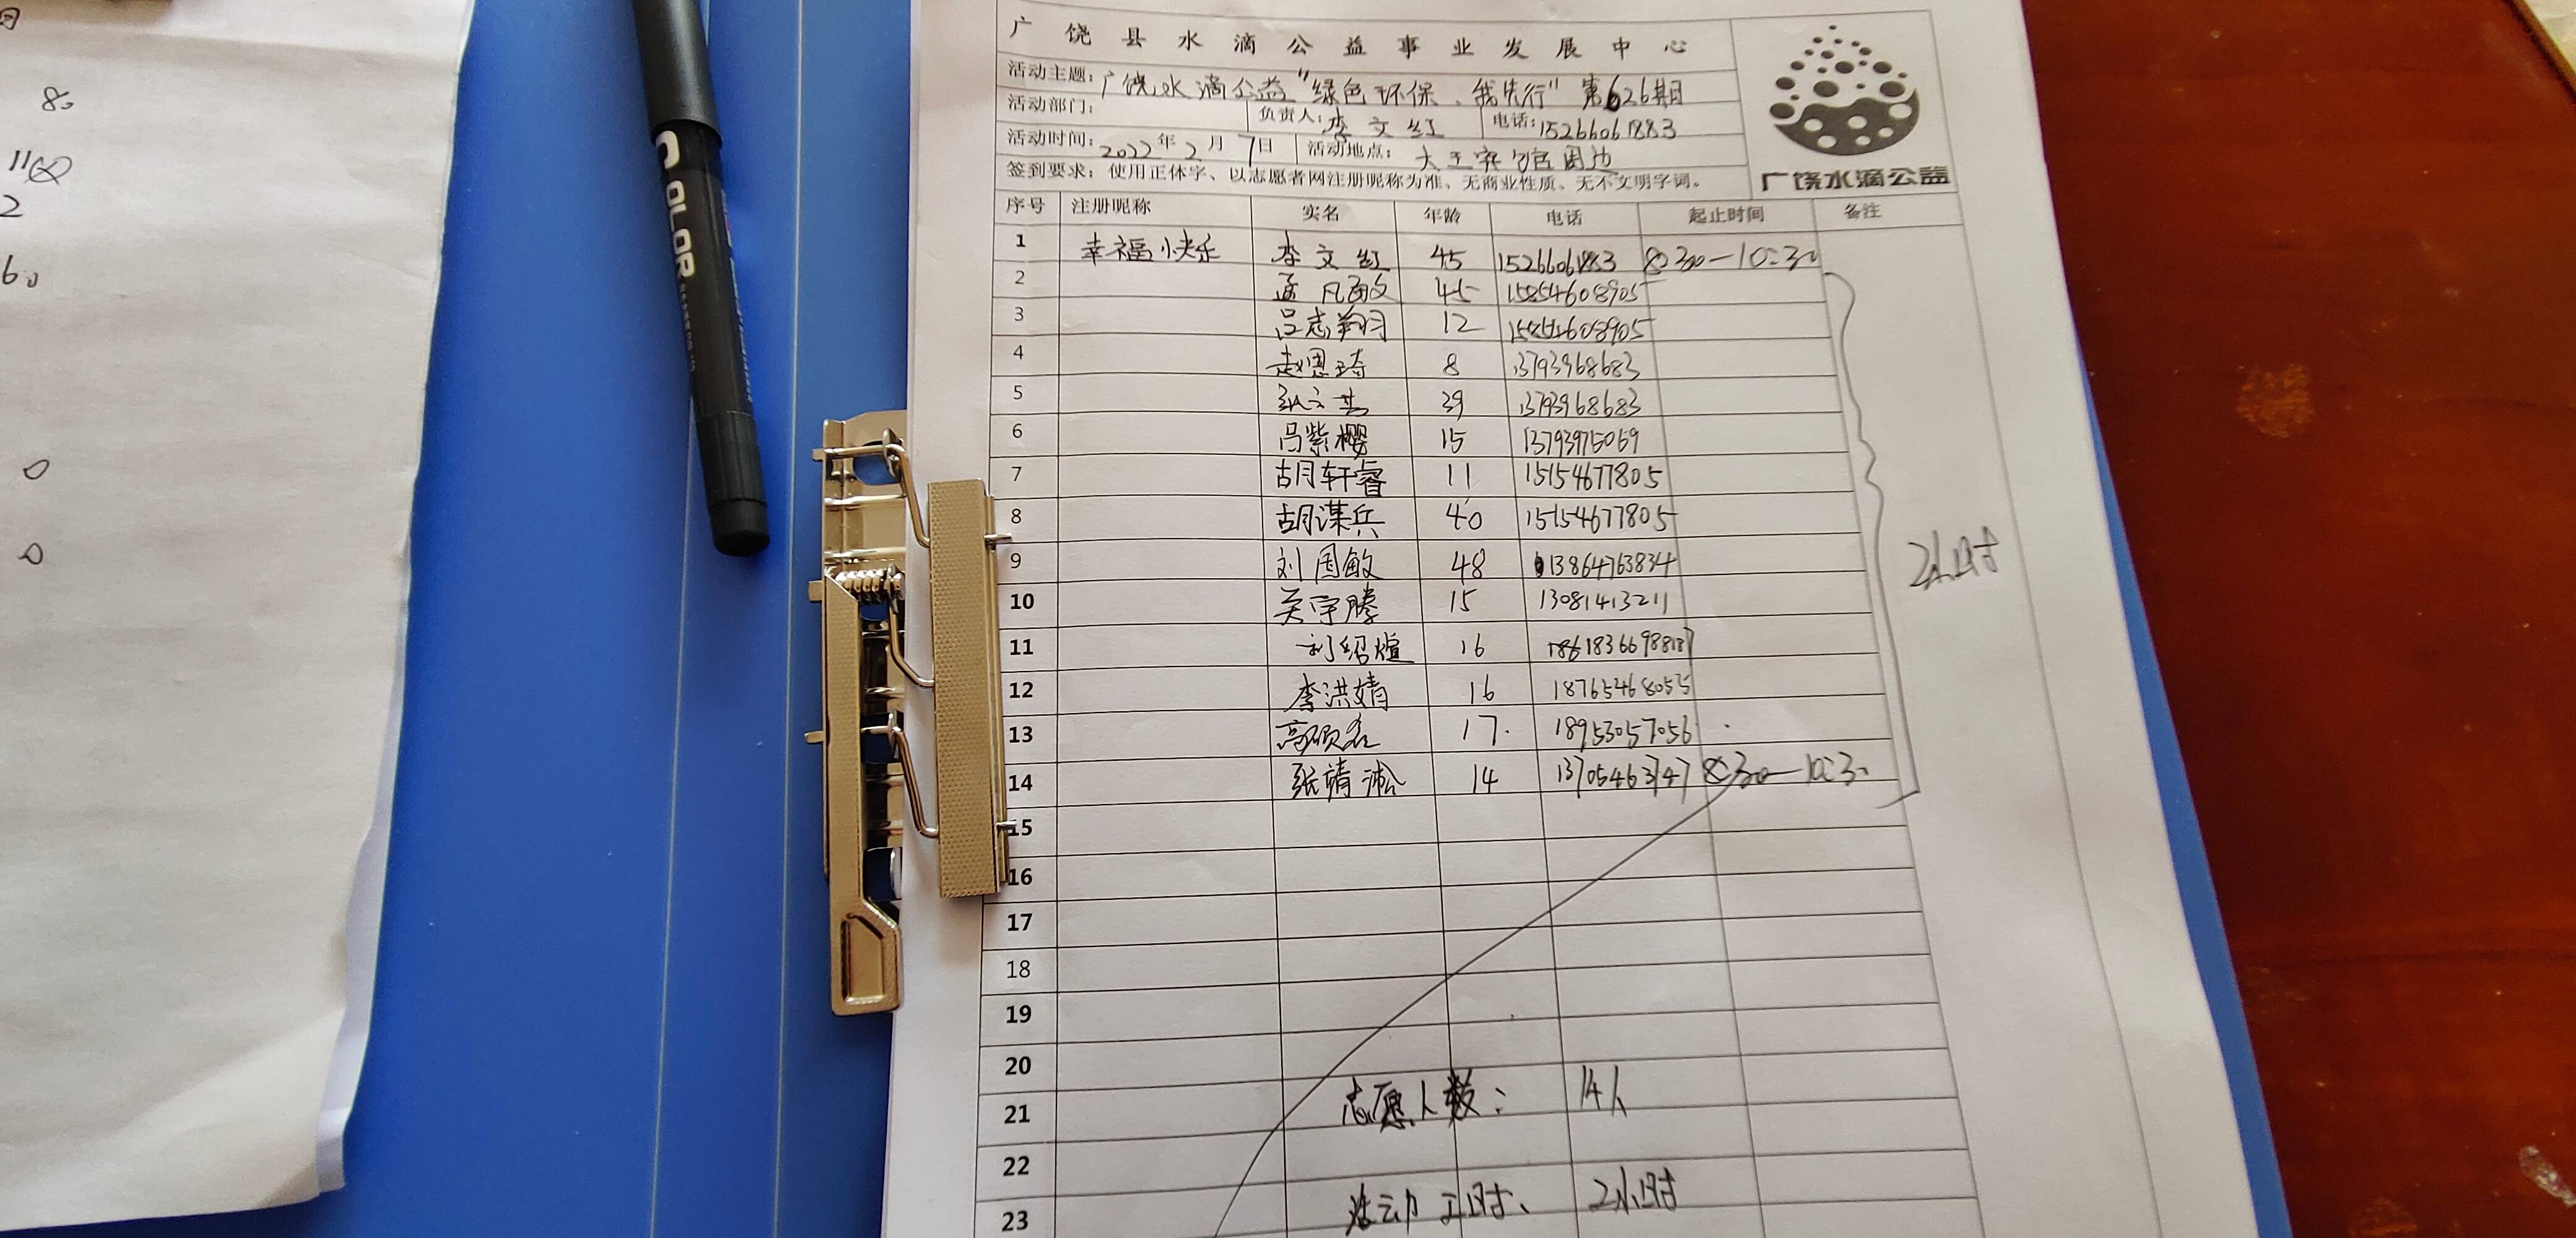 8。
11
2
6。
0
0
COLOR
广饶县水滴公益事业发展中心
活动主题：广饶水滴公益"绿色环保、我先行"第626期
活动部门： 负责人：李文红 电话：15266061883
活动时间：2022年2月7日 活动地点：大王宾馆周边
签到要求：使用正体字、以志愿者网注册昵称为准、无商业性质、无不文明字词。
广饶水滴公益
序号 注册昵称 实名 年龄 电话 起止时间 备注
1 幸福小快乐 李文红 45 15266061883 8:30—10:30
2 孟凡敏 45 15854608905
3 吕志翔 12 15854608905
4 赵恩琦 8 13793968683
5 39 13793968683
6 冯紫樱 15 13793975069
7 胡轩睿 11 15154677805
8 胡谋兵 40 15154677805
9 刘国敏 48 13864763834
2小时
10 吴宇腾 15 13081413211
11 刘绍煊 16
12 李洪婧 16 18765468055
13 高硕名 17. 18953057056
14 张靖淞 14 13705463747 8:30—10:30
15
16
17
18
19
20
21 志愿人数： 14人
22
23 活动工时、 2小时